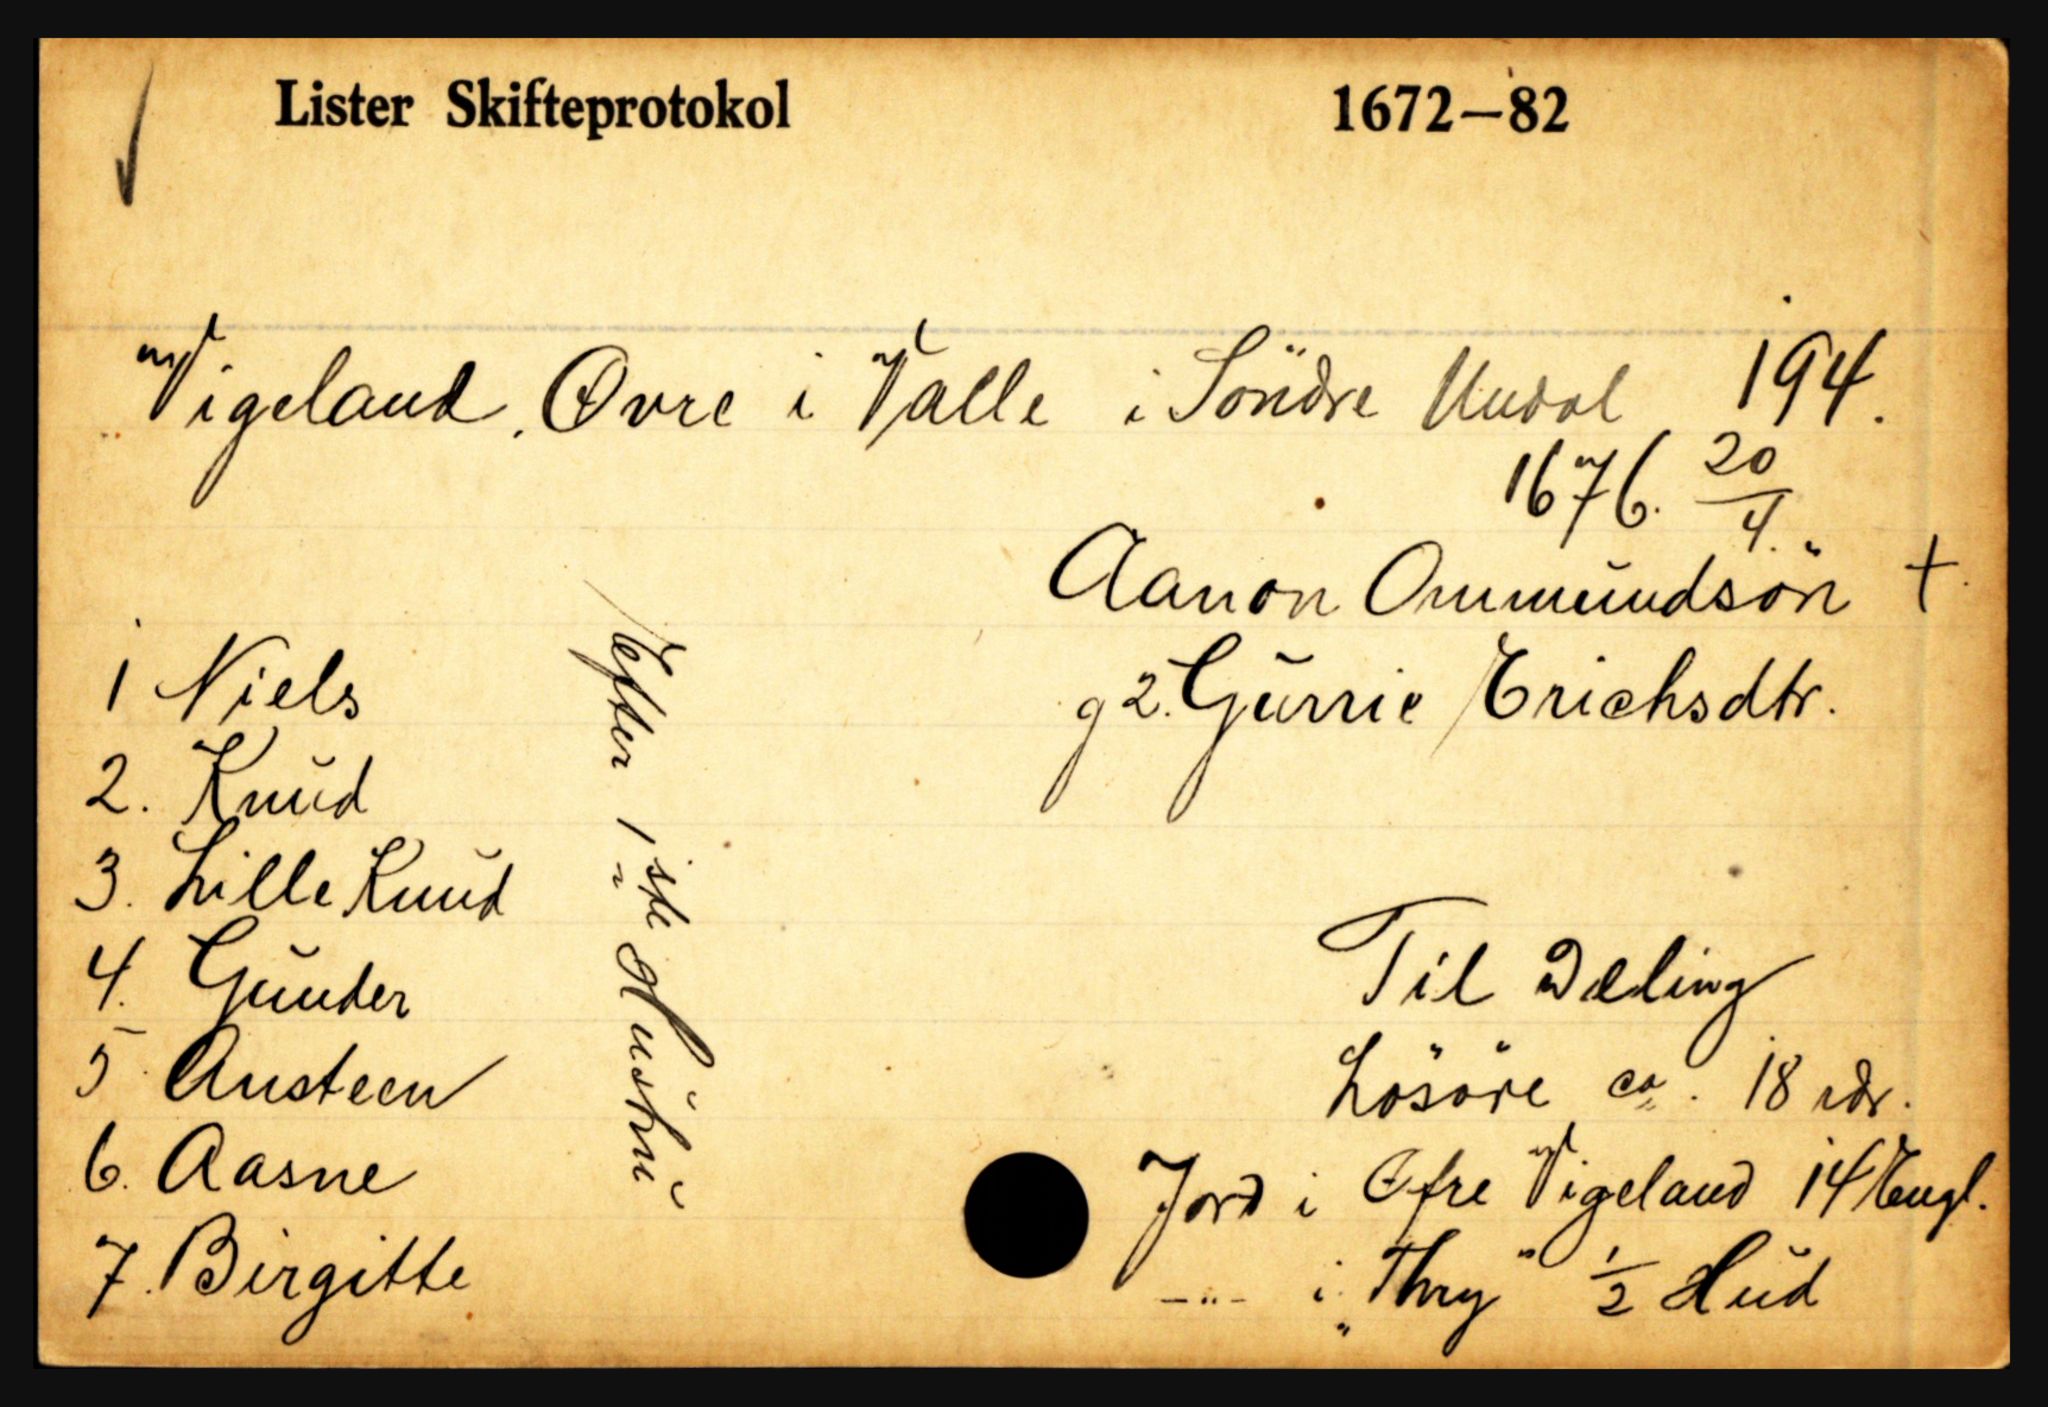 Lister Skifteprotokol 1672—82
Vigeland, Øvre i Valle i Söndre Undal 194.
1676. 20/4.
Aanon Ommundsön +
g 2. Gurrie Erichsdtr.
1 Niels
2. Knud
3. Lille Knud
4. Gunder
5 Austeen
6. Aasne
7. Birgitte
efter 1ste Hustru
Til Deling
Lösöre ca. 18 rdr.
Jord i Øfre Vigeland 14 Engl.
—"— i „Thry" 1/2 Hud